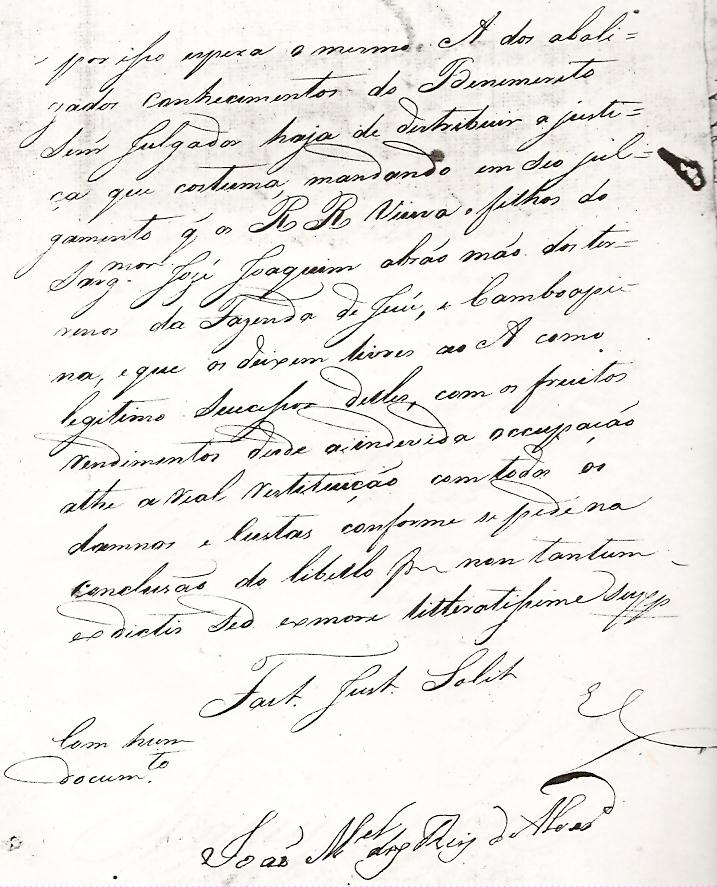 por isso espera o mesmo A dos abali=
zados conhecimentos do Benemerito
Senr. Julgador haja de destribuir a justi=
ça que costuma, mandando em seo jul=
gamento q̃ os RR Viuva e filhos do
Sarg.mor Jozé Joaquim abrão mão dos ter=
renos da Fazenda de Jeué, e Camboapi=
na, e que os deixem livres ao A como
legitimo Sucessor delles, com os fructos
rendimentos desde a indevida occupaiáo
athe a real restituição com todos os
damnos e Custas conforme se pede na
conclusão do libello non tantum
ex dictis Sed ex more litteratissime
Fact. Just. Solit
Com hum
docum.to
João M.el dos Reis